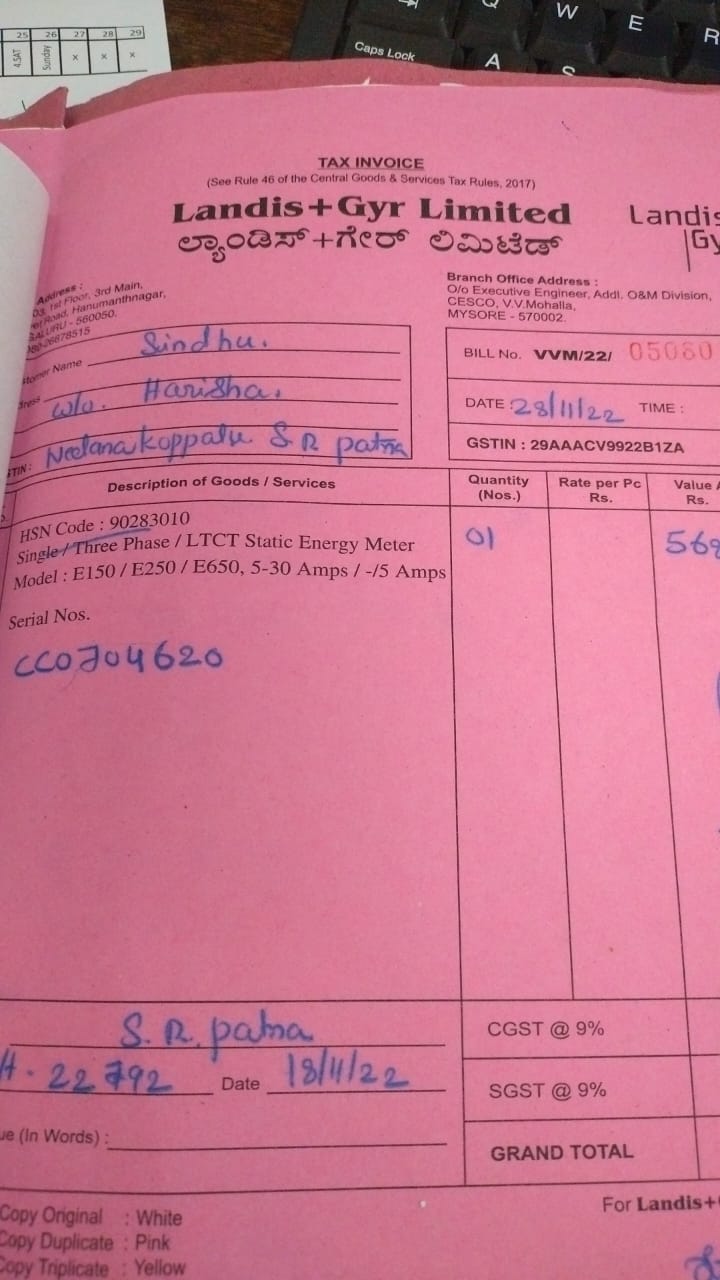 25 26 27 28 29
4.SAT Sunday x x x
Q W E R
Caps Lock A S
TAX INVOICE
(See Rule 46 of the Central Goods & Services Tax Rules, 2017)
Landis+Gyr Limited
Landis
Gy
ಲ್ಯಾಂಡಿಸ್+ಗೇರ್ ಲಿಮಿಟೆಡ್
Address :
03, 1st Floor, 3rd Main,
Road, Hanumanthnagar,
GALURU - 560050.
080-26678515
Branch Office Address :
O/o Executive Engineer, Addl. O&M Division,
CESCO, V.V.Mohalla,
MYSORE - 570002.
stomer Name Sindhu.
dress w/o. Harisha.
Neelanakoppalu S R patna
STIN :
BILL No. VVM/22/ 05080
DATE : 28/11/22 TIME :
GSTIN : 29AAACV9922B1ZA
Description of Goods / Services
Quantity (Nos.)
Rate per Pc Rs.
Value Rs.
HSN Code : 90283010
Single / Three Phase / LTCT Static Energy Meter
Model : E150 / E250 / E650, 5-30 Amps / -/5 Amps
01
568
Serial Nos.
CC0704620
S. R. patna
22792 Date 18/11/22
ue (In Words) :
CGST @ 9%
SGST @ 9%
GRAND TOTAL
Copy Original : White
Copy Duplicate : Pink
Copy Triplicate : Yellow
For Landis+